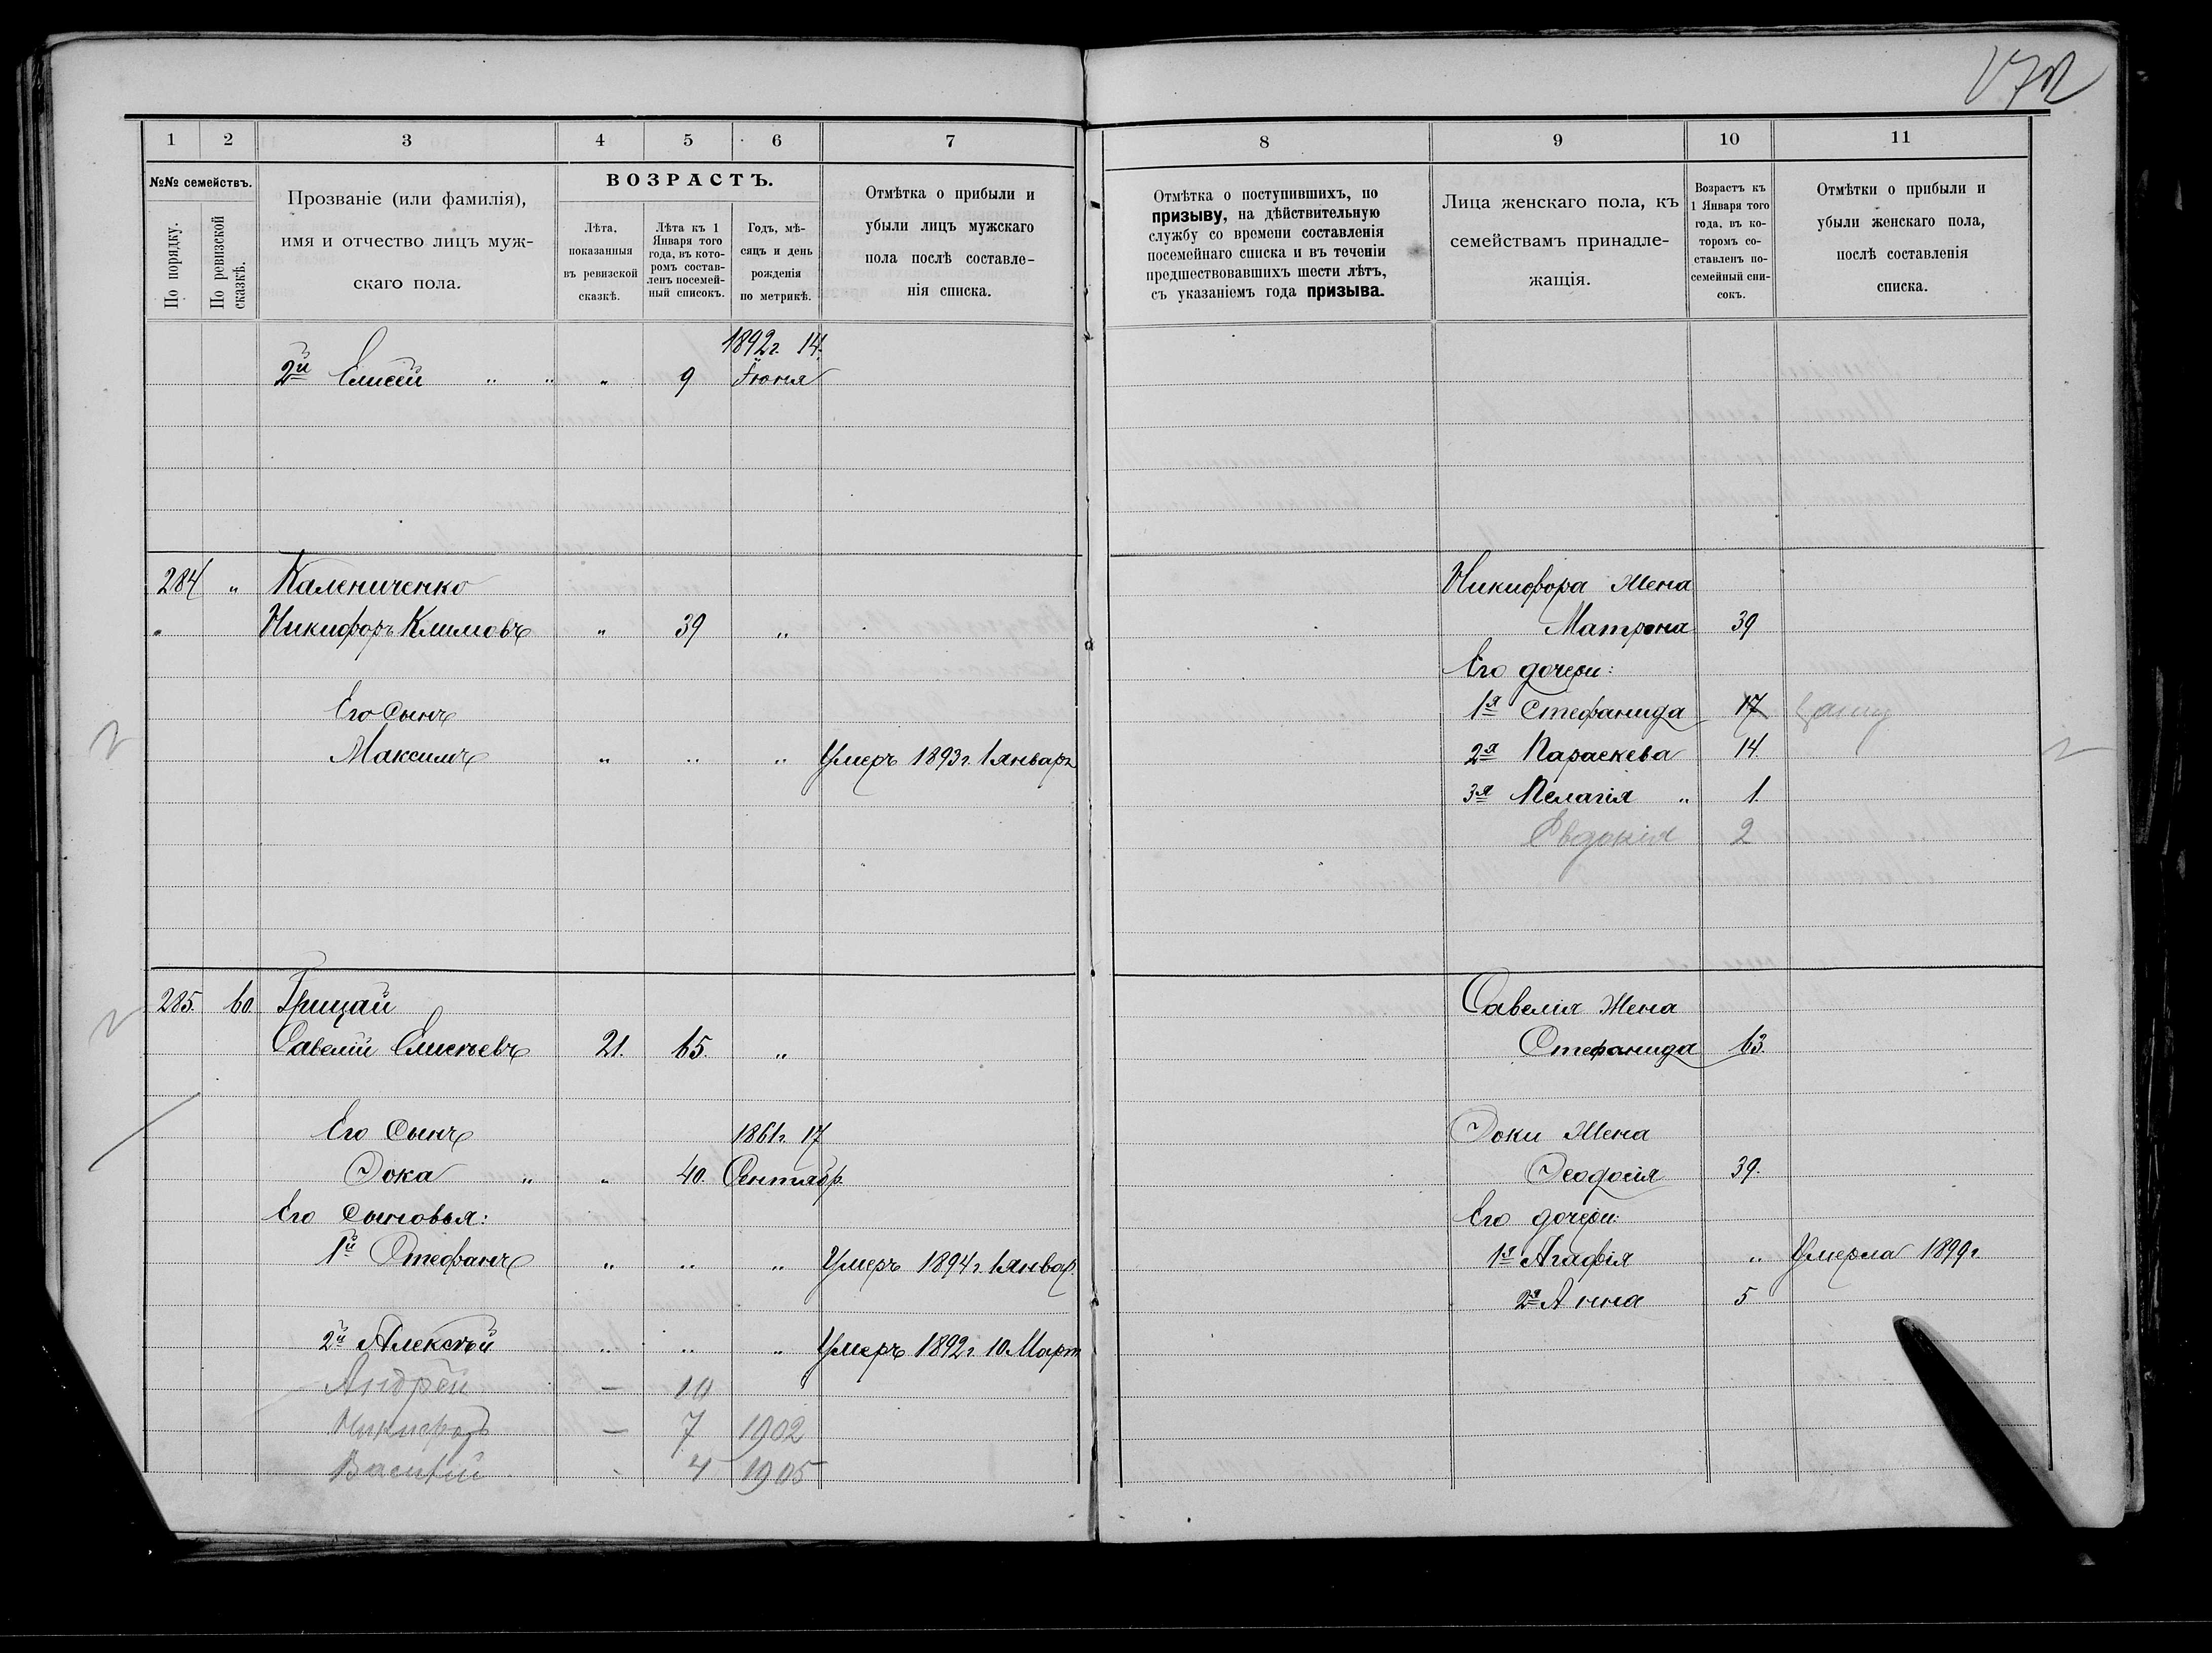 172
1 2 3 4 5 6 7
№№ семействъ.
По порядку.
По ревизской сказкѣ.
Прозваніе (или фамилія),
имя и отчество лицъ муж-
скаго пола.
ВОЗРАСТЪ.
Лѣта,
показанныя
въ ревизской
сказкѣ.
Лѣта къ 1
Января того
года, въ кото-
ромъ состав-
ленъ посемей-
ный списокъ.
Годъ, мѣ-
сяцъ и день
рожденія
по метрикѣ.
Отмѣтка о прибыли и
убыли лицъ мужскаго
пола послѣ составле-
нія списка.
1892г. 14.
2й Елисей " " " 9 Іюня
284 " Калениченко
" Никифоръ Климовъ " 39 "
Его Сынъ
Максимъ " " " Умеръ 1893г. 1 январъ
285. 60. Грицай
Савелій Елисѣевъ 21. 65. "
Его Сынъ 1861г. 17
Іока " " 40. Сентябр.
Его Сыновья:
1й Стефанъ " " " Умеръ 1894г. 1 январ.
2й Алексѣй " " " Умеръ 1892г 10 Март
Андрей — 10
Никифоръ — 7 1902
Василій - 4 1905
8 9 10 11
Отмѣтка о поступившихъ, по
призыву, на дѣйствительную
службу со времени составленія
посемейнаго списка и въ теченіи
предшествовавшихъ шести лѣтъ,
съ указаніемъ года призыва.
Лица женскаго пола, къ
семействамъ принадле-
жащія.
Возрастъ къ
1 Января того
года, въ ко-
торомъ со-
ставленъ по-
семейный спи-
сокъ.
Отмѣтки о прибыли и
убыли женскаго пола,
послѣ составленія
списка.
Никифора Жена
Матрона 39
Его дочери:
1я Стефанида 17
2я Параскева 14.
3я Пелагія " 1.
Евдокія 2
Савелія Жена
Стефанида 63.
Іоки Жена
Феодосія 39.
Его дочери:
1я Агафія " Умерла 1899г.
2я Анна 5